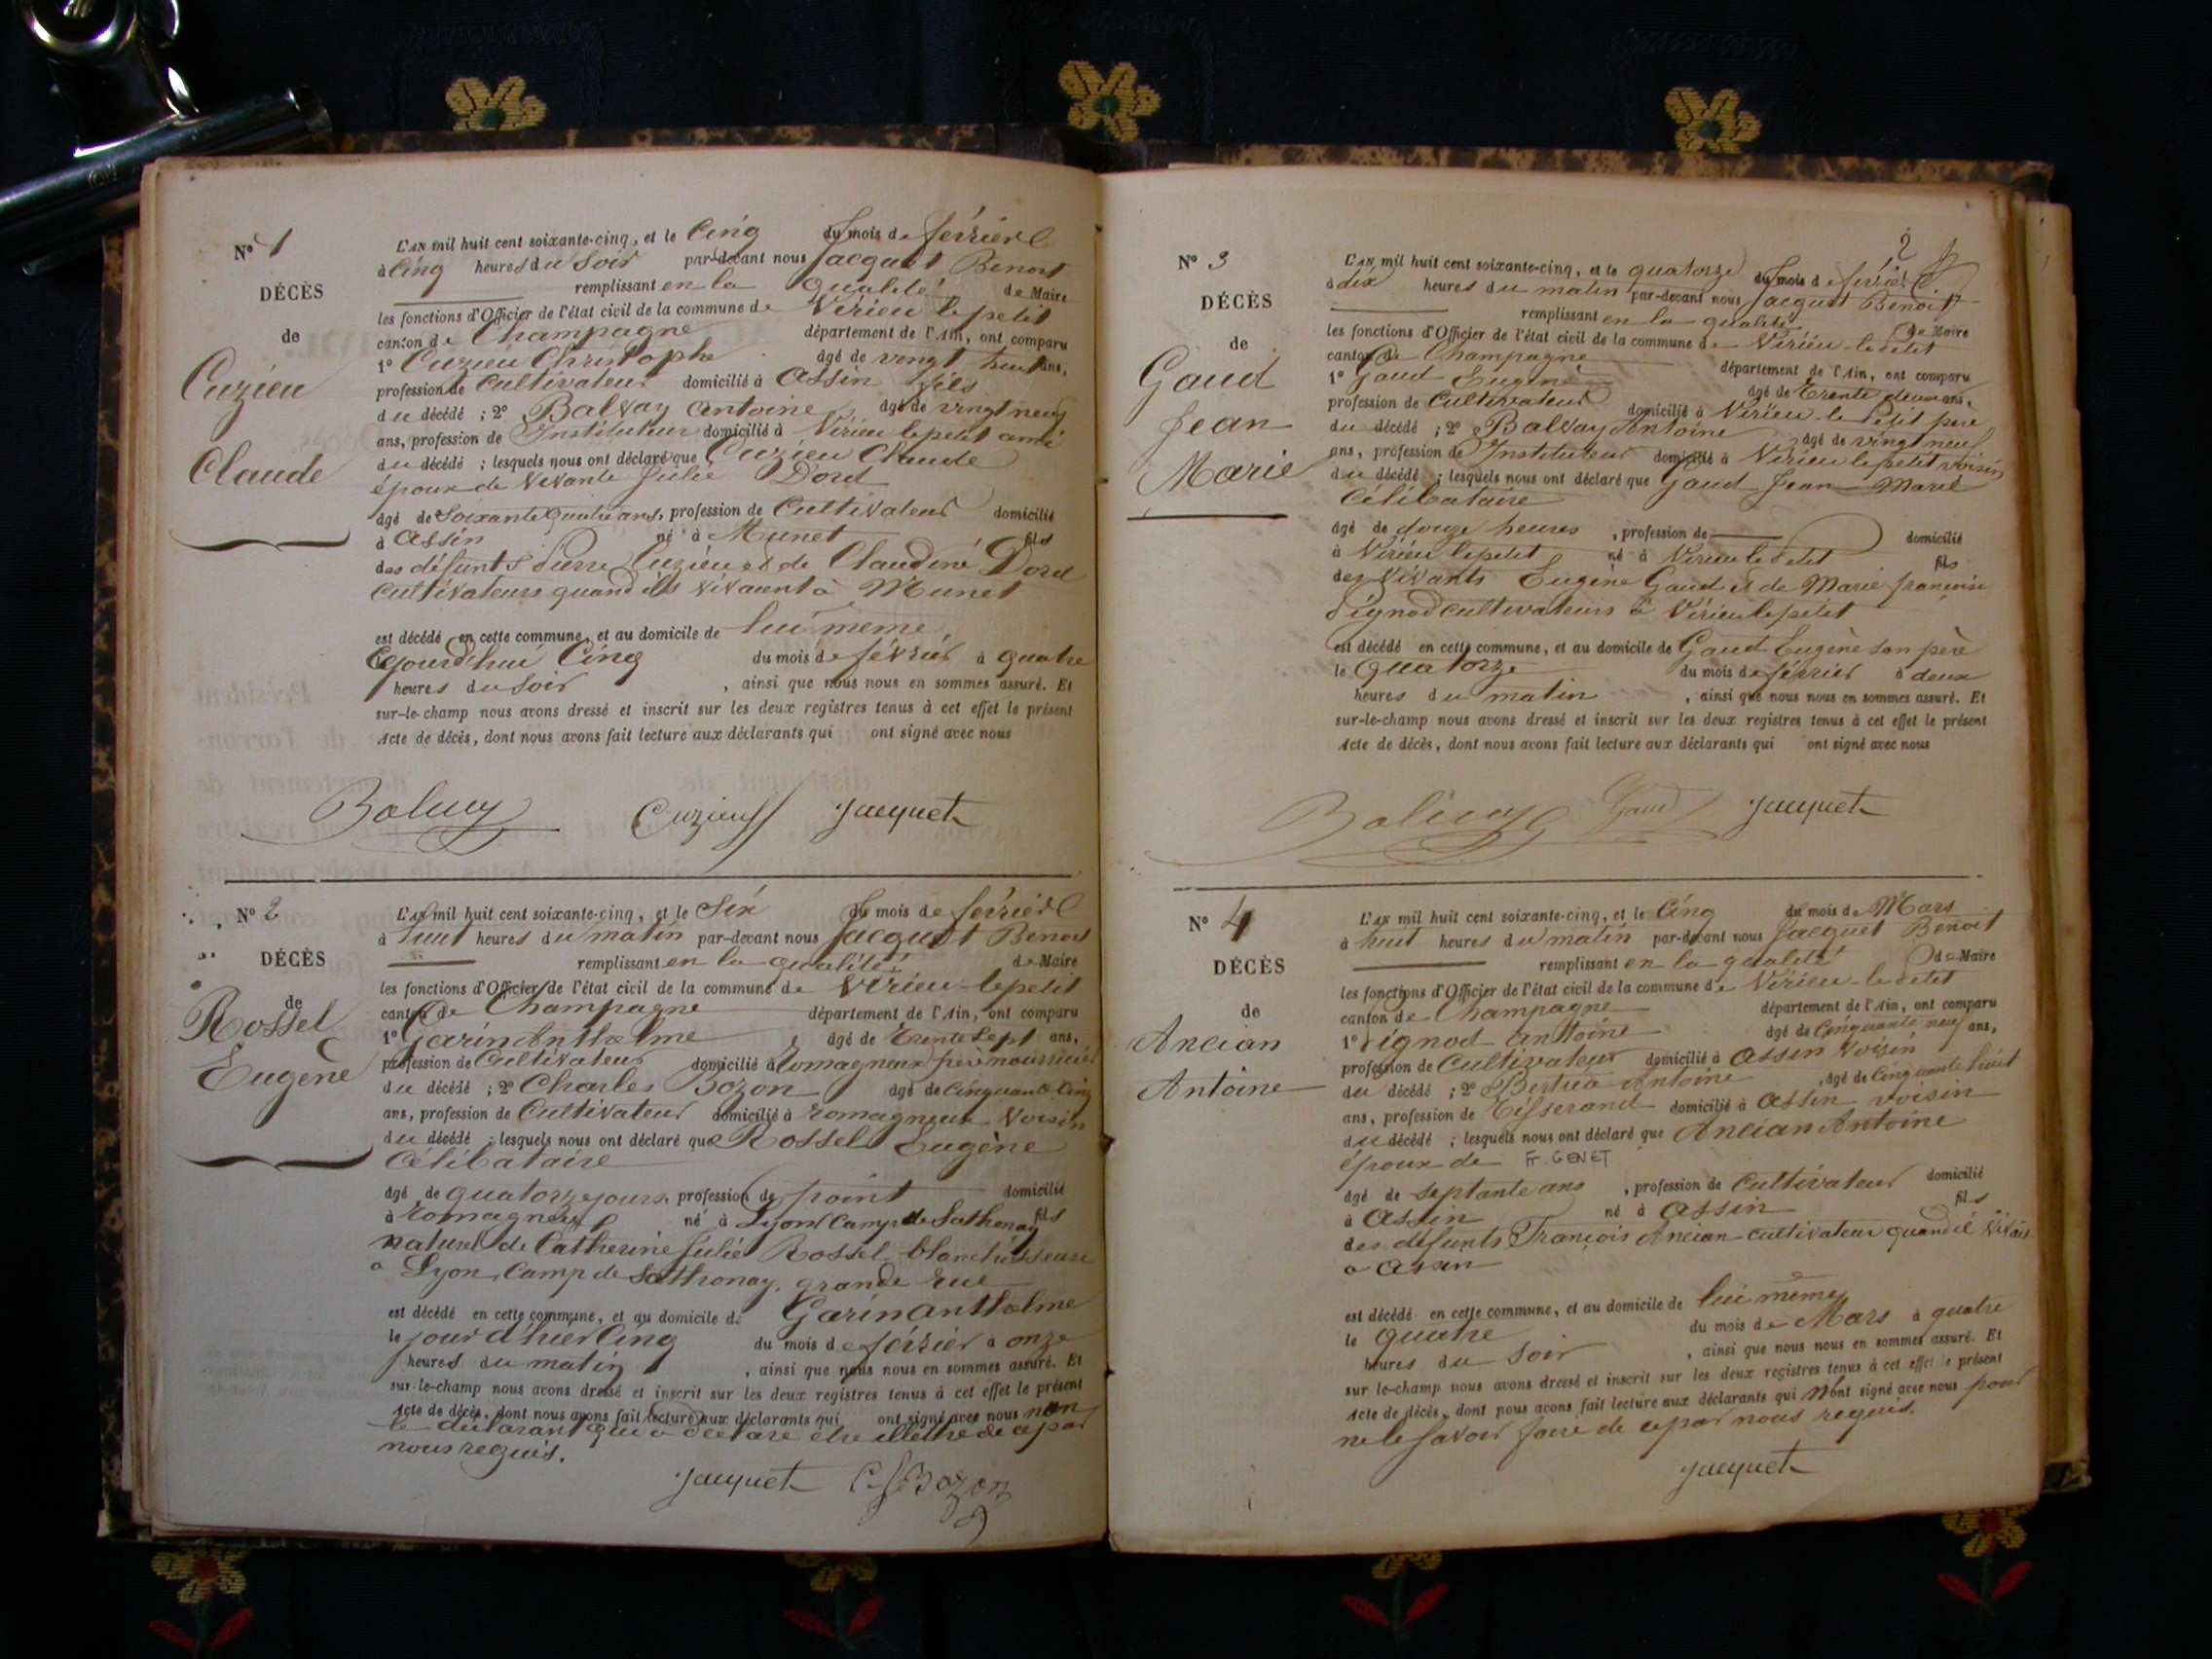 N° 1
DÉCÈS
de
Cuzieu
Claude
L'AN mil huit cent soixante-cinq, et le Cinq du mois de février
à Cinq heures du Soir par-devant nous Jacquet Benoit
remplissant en la qualité de Maire
les fonctions d'Officier de l'état civil de la commune de Virieu le petit
canton de Champagne département de l'Ain, ont comparu
1° Cuzieu Christophe âgé de vingt huit ans,
profession de Cultivateur domicilié à Assin fils
du décédé ; 2° Balvay Antoine âgé de vingt neuf
ans, profession de Instituteur domicilié à Virieu le petit ami
du décédé ; lesquels nous ont déclaré que Cuzieu Claude
époux de vivante Julie Dord
âgé de Soixante quatre ans, profession de Cultivateur domicilié
à Assin né à Munet fils
des défunts Pierre Cuzieu et de Claudine Dord
cultivateurs quand ils vivaient à Munet
est décédé en cette commune, et au domicile de lui même
le jourd'hui Cinq du mois de février à quatre
heures du Soir , ainsi que nous nous en sommes assuré. Et
sur-le-champ nous avons dressé et inscrit sur les deux registres tenus à cet effet le présent
Acte de décès, dont nous avons fait lecture aux déclarants qui ont signé avec nous
Balvay Cuzieu Jacquet
N° 2
DÉCÈS
de
Rossel
Eugène
L'AN mil huit cent soixante-cinq, et le Six du mois de février
à huit heures du matin par-devant nous Jacquet Benoit
remplissant en la qualité de Maire
les fonctions d'Officier de l'état civil de la commune de Virieu-le petit
canton de Champagne département de l'Ain, ont comparu
1° Garin Anthelme âgé de Trente Sept ans,
profession de Cultivateur domicilié à Romagneux père nourricier
du décédé ; 2° Charles Bozon âgé de Cinquante Cinq
ans, profession de Cultivateur domicilié à romagneux voisin
du décédé ; lesquels nous ont déclaré que Rossel Eugène
Célibataire
âgé de quatorze jours, profession de point domicilié
à romagneux né à Lyon Camp de Sathonay fils
naturel de Catherine Julie Rossel blanchisseuse
à Lyon, Camp de Sathonay, grande rue
est décédé en cette commune, et au domicile de Garin anthelme
le jour d'hier Cinq du mois de février à onze
heures du matin , ainsi que nous nous en sommes assuré. Et
sur-le-champ nous avons dressé et inscrit sur les deux registres tenus à cet effet le présent
Acte de décès, dont nous avons fait lecture aux déclarants qui ont signé avec nous non
le déclarant qui a déclaré être illettré de ce par
nous requis.
Jacquet C. Bozon
2
N° 3
DÉCÈS
de
Gaud
Jean
Marie
L'AN mil huit cent soixante-cinq, et le quatorze du mois de février
à dix heures du matin par-devant nous Jacquet Benoit
remplissant en la qualité de Maire
les fonctions d'Officier de l'état civil de la commune de Virieu-le Petit
canton de Champagne département de l'Ain, ont comparu
1° Gaud Eugène âgé de Trente deux ans,
profession de Cultivateur domicilié à Virieu-le Petit père
du décédé ; 2° Balvay Antoine âgé de vingt neuf
ans, profession de Instituteur domicilié à Virieu le petit voisin
du décédé ; lesquels nous ont déclaré que Gaud Jean Marie
Célibataire
âgé de douze heures , profession de domicilié
à Virieu le petit né à Virieu le Petit fils
des vivants Eugène Gaud et de Marie françoise
Pignod cultivateurs à Virieu le petit
est décédé en cette commune, et au domicile de Gaud Eugène son père
le Quatorze du mois de février à deux
heures du matin , ainsi que nous nous en sommes assuré. Et
sur-le-champ nous avons dressé et inscrit sur les deux registres tenus à cet effet le présent
Acte de décès, dont nous avons fait lecture aux déclarants qui ont signé avec nous
Balvay Gaud Jacquet
N° 4
DÉCÈS
de
Ancian
Antoine
L'AN mil huit cent soixante-cinq, et le Cinq du mois de Mars
à huit heures du matin par-devant nous Jacquet Benoit
remplissant en la qualité de Maire
les fonctions d'Officier de l'état civil de la commune de Virieu-le Petit
canton de Champagne département de l'Ain, ont comparu
1° Pignod Antoine âgé de Cinquante neuf ans,
profession de Cultivateur domicilié à Assin Voisin
du décédé ; 2° Antoine , âgé de Cinquante huit
ans, profession de Tisserand domicilié à Assin voisin
du décédé ; lesquels nous ont déclaré que Ancian Antoine
époux de F. GENET
âgé de septante ans , profession de Cultivateur domicilié
à Assin né à Assin fils
des défunts François Ancian cultivateur quand il vivait
à Assin
est décédé en cette commune, et au domicile de lui même
le quatre du mois de Mars à quatre
heures du Soir , ainsi que nous nous en sommes assuré. Et
sur le-champ nous avons dressé et inscrit sur les deux registres tenus à cet effet le présent
Acte de décès, dont nous avons fait lecture aux déclarants qui n'ont signé avec nous pour
ne le savoir faire de ce par nous requis.
Jacquet